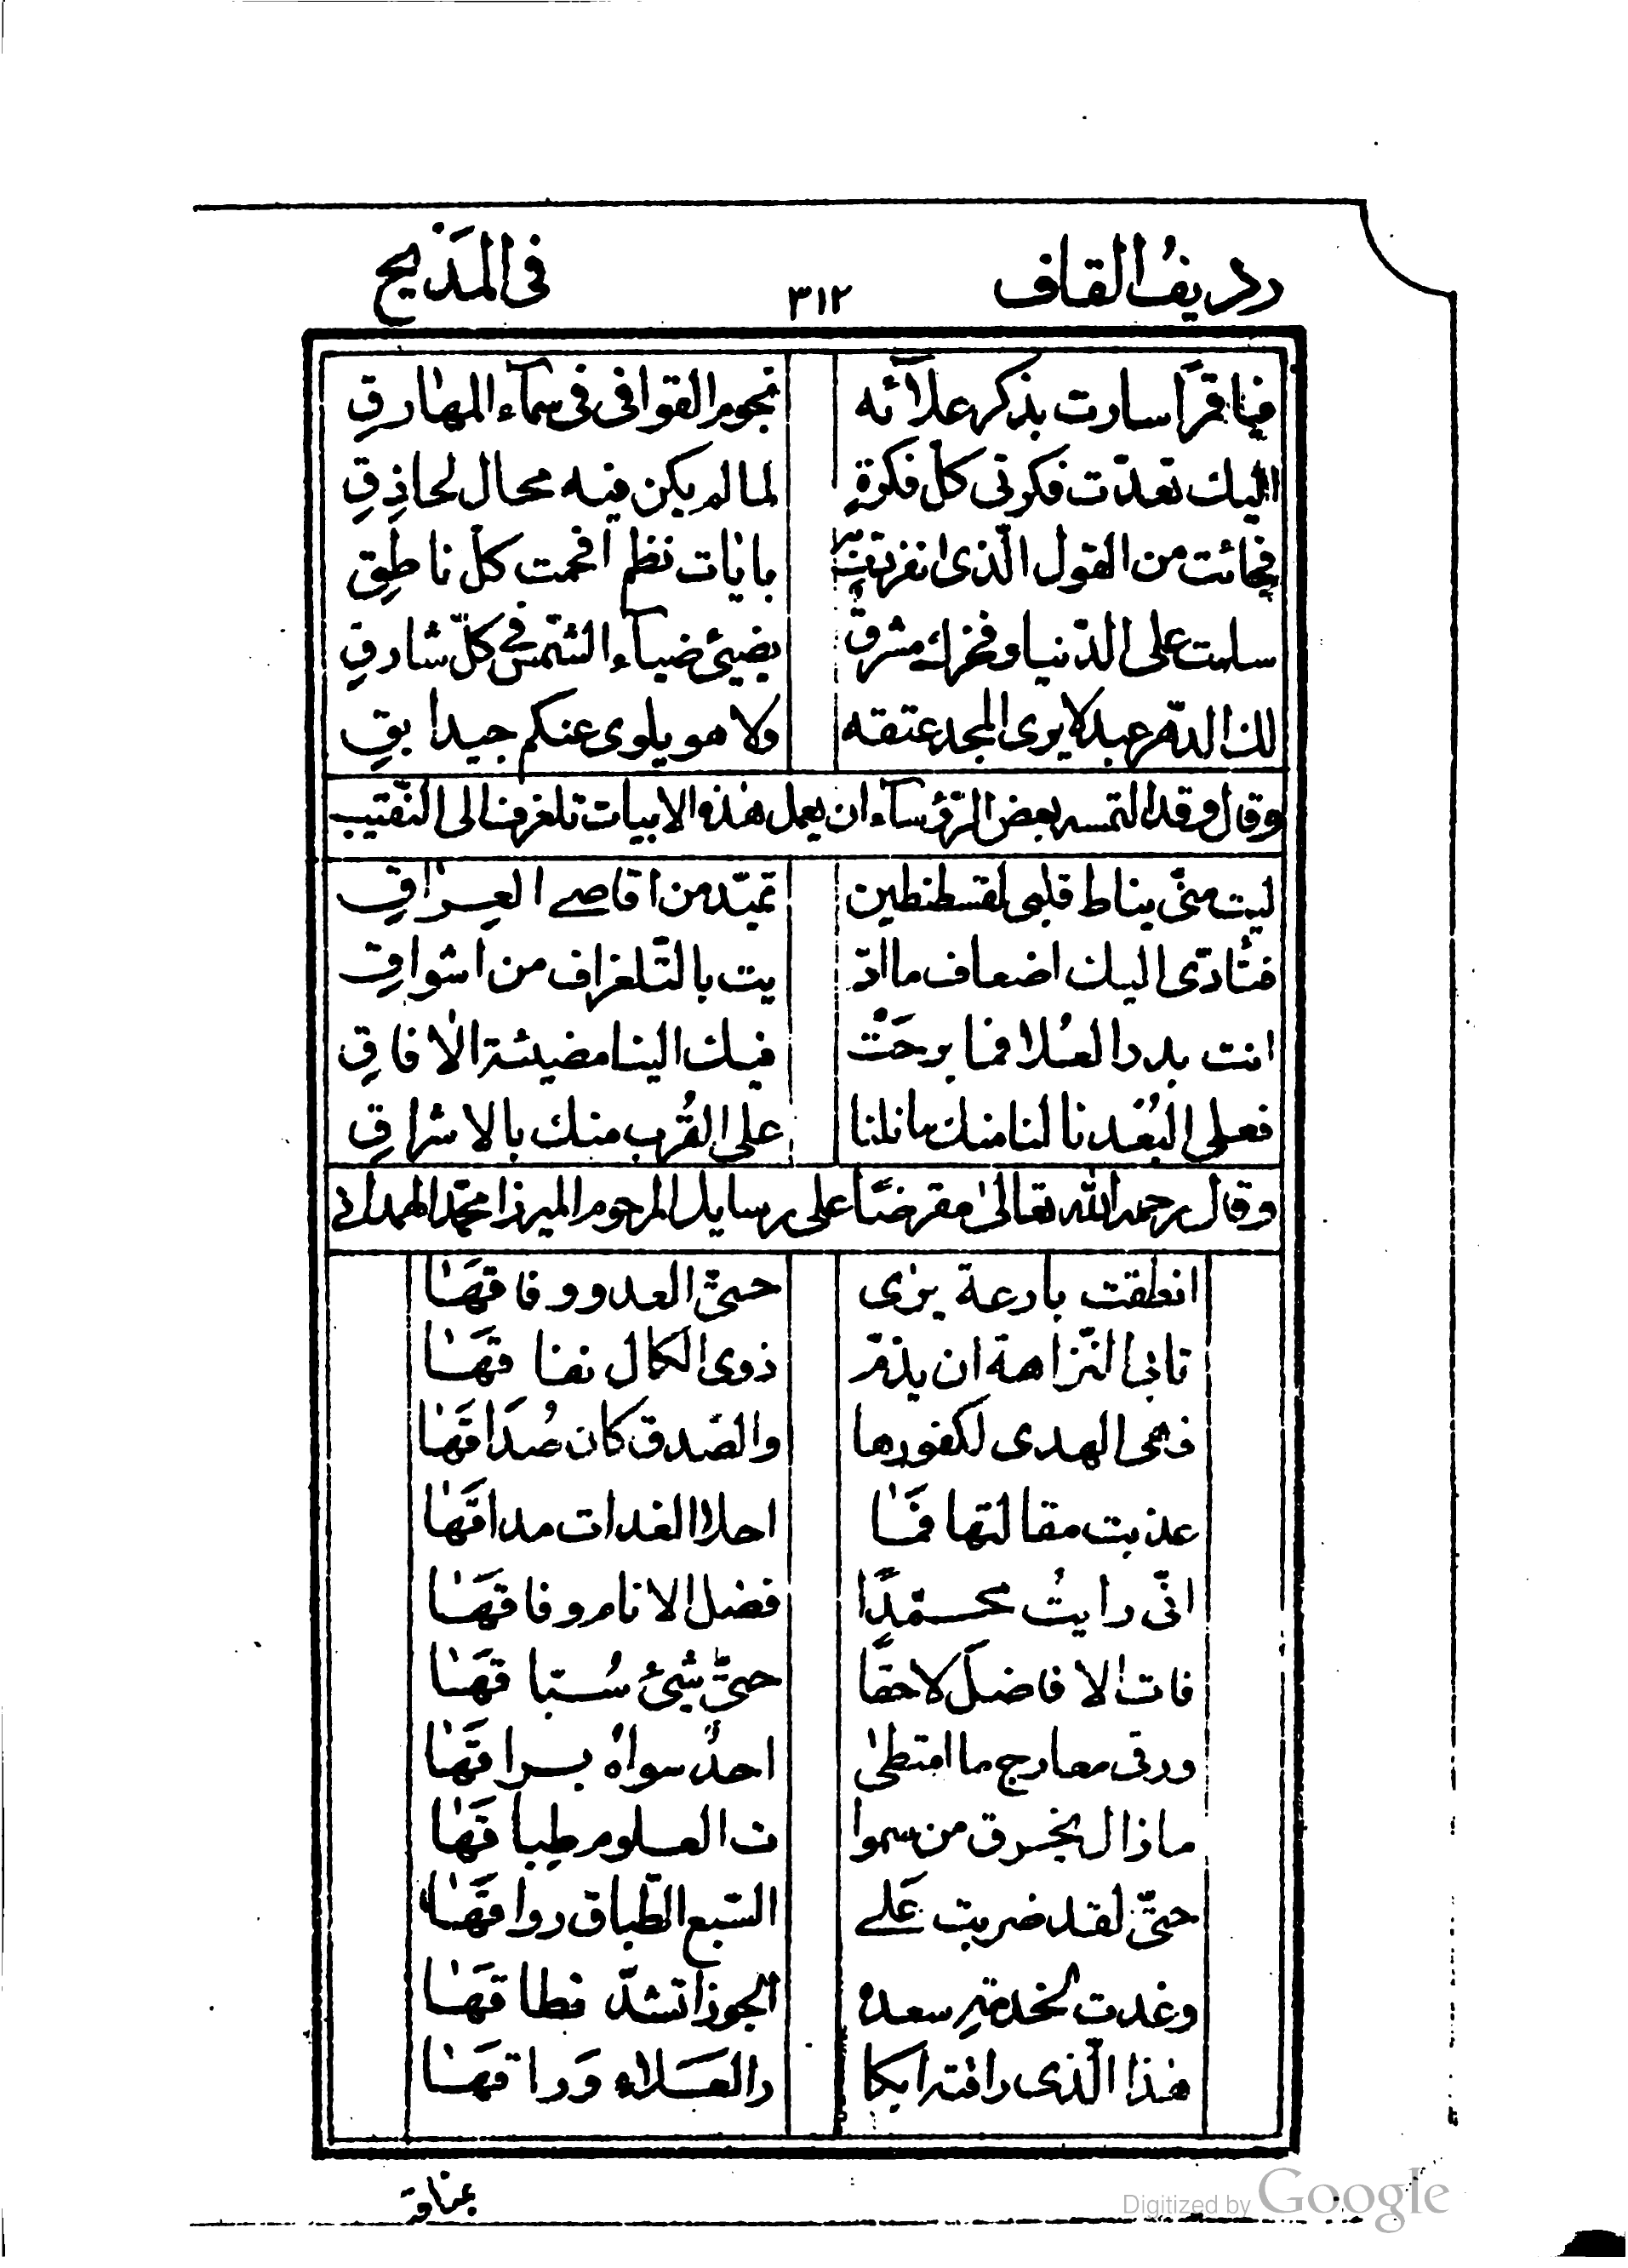 رديفُ القاف ٣١٢ في المَديح
فيا قمرًا سارت بذكر علآئه نجوم القوافى فى سمآء المهارقِ
اليك تعدّت فكرتى كلّ فكرةٍ لما لم يكن فيه محال لحاذِقِ
فجائت من القول الّذى انفردت به بايات نظم افحمت كلّ ناطِقِ
سلمت على الدّنيا وفخرك مشرقٌ يضيئ ضيآء الشّمس فى كلّ شارقِ
لك الدّهر عبد لا يرى المجد عتقه ولا هو يلوى عنكم جيد ابقِ
وقال وقد التمسه بعض الرّؤسآء ان يعمل هذه الابيات تلغرفنا الى النّقيب
ليت منّى يناط قلبى لقسطنطين تمتدّ من اقاصى العِراقِ
فتأدّى اليك اضعاف ما ادّ يت بالتّلغراف من اشواقِ
انت بدر العُلا فما برحَتْ فيك الينا مضيئة الافاقِ
فعلى البُعْد نالنا منك ما نلنا على القُرب منك بالاشراقِ
وقال رحمه الله تعالى مقرضًا على رسايل المرحوم الميرزا محمّد الهمدانى
انطقت بارعة يرى حتىّ العدو وفاقَهَا
تابى النّزاهة ان يذمّ ذوى الكمال نفاقَهَا
فهى الهدى لكفورها والصّدق كان صُدَاقَهَا
عذبت مقالتها فمَا احلا الغدات مداقَهَا
انّى رايتُ محمّدًا فضل الانام وفاقَهَا
فات الافاضل لاحقًا حتىّ شيئ سُبّاقَهَا
ورقى معارج ما امتطى احدٌ سواهُ براقَهَا
ما زال يخرق من سموا ت العلوم طِباقَهَا
حتىّ لقد ضربت عَلى السّبع الطّباق رواقَهَا
وغدت لخدمتهِ سعده الجوزا تشدّ نطاقَهَا
هذا الّذى رافته ابكا ر العَلاء وَراقَهَا
عناقه
Digitized by Google